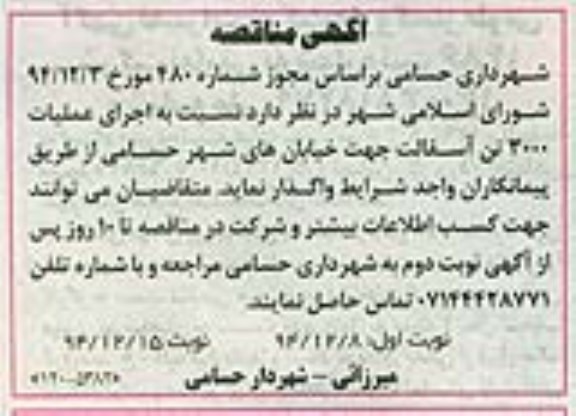 آگهی مناقصه
شهرداری حسامی براساس مجوز شماره ۴۸۰ مورخ ۹۴/۱۲/۳
شورای اسلامی شهر در نظر دارد نسبت به اجرای عملیات
۳۰۰۰ تن آسفالت جهت خیابان های شهر حسامی از طریق
پیمانکاران واجد شرایط واگذار نماید. متقاضیان می توانند
جهت کسب اطلاعات بیشتر و شرکت در مناقصه تا ۱۰ روز پس
از آگهی نوبت دوم به شهرداری حسامی مراجعه و با شماره تلفن
۰۷۱۴۴۴۲۸۷۷۱ تماس حاصل نمایند.
نوبت اول: ۹۴/۱۲/۸ نوبت: ۹۴/۱۲/۱۵
میرزائی - شهردار حسامی